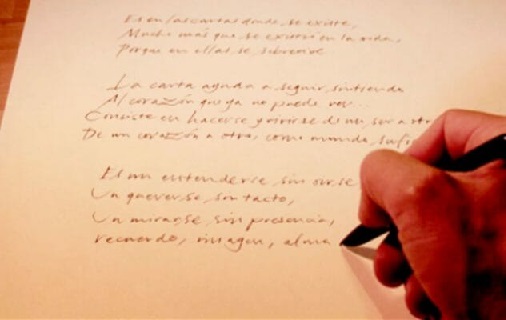 Es en las cartas donde se existe,
Mucho más que se existió en la vida,
Porque en ellas se sobrevive
La carta ayuda a seguir sintiendo
Al corazón que ya no puede ver...
Consiste en hacerse de un ser a otro
De un corazón a otro, como
Es un entenderse sin oirse
Un quererse sin tacto,
Un mirarse sin presencia,
recuerdo, imagen, alma